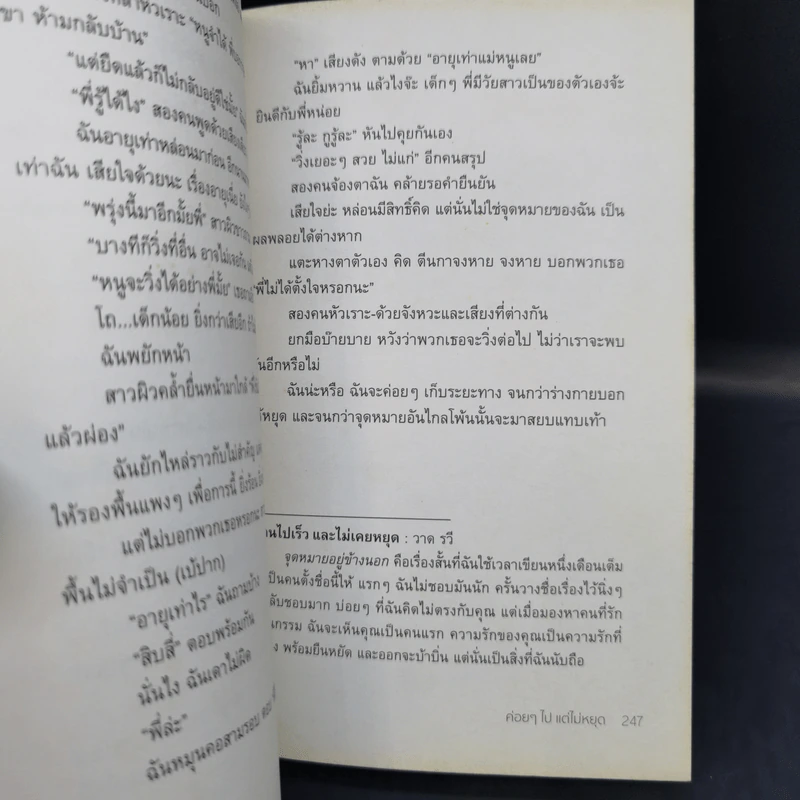 ขา ห้ามกลับบ้าน"
"แต่ยืดแล้วก็ไม่กลับอยู่ดีใช่มั้ย"
"พี่รู้ได้ไง" สองคนพูดด้วยเสียง
ฉันอายุเท่าหล่อนมาก่อน
เท่าฉัน เสียใจด้วยนะ เรื่องอายุ
"พรุ่งนี้มาอีกมั้ยพี่"
"บางทีก็วิ่งที่อื่น อาจไม่เจอกัน
"หนูจะวิ่งได้อย่างพี่มั้ย"
โถ...เด็กน้อย ยิ่งกว่าเสียอีก
ฉันพยักหน้า
สาวผิวคล้ำยื่นหน้ามาใกล้
แล้วผ่อง"
ฉันยักไหล่ราวกับไม่สำคัญ
ให้รองพื้นแพงๆ เพื่อการนี้
แต่ไม่บอกพวกเธอหรอกนะ
พื้นไม่จำเป็น (เบ้ปาก)
"อายุเท่าไร" ฉันถามบ้าง
"สิบสี่" ตอบพร้อมกัน
นั่นไง ฉันเดาไม่ผิด
"พี่ล่ะ"
ฉันหมุนคอสามรอบ
"หา" เสียงดัง ตามด้วย "อายุเท่าแม่หนูเลย"
ฉันยิ้มหวาน แล้วไงจ๊ะ เด็กๆ พี่มีวัยสาวเป็นของตัวเองจ้ะ
ยินดีกับพี่หน่อย
"รู้ละ กูรู้ละ" หันไปคุยกันเอง
"วิ่งเยอะๆ สวย ไม่แก่" อีกคนสรุป
สองคนจ้องตาฉัน คล้ายรอคำยืนยัน
เสียใจย่ะ หล่อนมีสิทธิ์คิด แต่นั่นไม่ใช่จุดหมายของฉัน เป็น
ผลพลอยได้ต่างหาก
แตะหางตาตัวเอง คิด ตีนกาจงหาย จงหาย บอกพวกเธอ
"พี่ไม่ได้ตั้งใจหรอกนะ"
สองคนหัวเราะ-ด้วยจังหวะและเสียงที่ต่างกัน
ยกมือบ๊ายบาย หวังว่าพวกเธอจะวิ่งต่อไป ไม่ว่าเราจะพบ
กันอีกหรือไม่
ฉันน่ะหรือ ฉันจะค่อยๆ เก็บระยะทาง จนกว่าร่างกายบอก
ให้หยุด และจนกว่าจุดหมายอันไกลโพ้นนั้นจะมาสยบแทบเท้า
ไปเร็ว และไม่เคยหยุด : วาด รวี
จุดหมายอยู่ข้างนอก คือเรื่องสั้นที่ฉันใช้เวลาเขียนหนึ่งเดือนเต็ม
เป็นคนตั้งชื่อนี้ให้ แรกๆ ฉันไม่ชอบมันนัก ครั้นวางชื่อเรื่องไว้นิ่งๆ
ลับชอบมาก บ่อยๆ ที่ฉันคิดไม่ตรงกับคุณ แต่เมื่อมองหาคนที่รัก
กรรม ฉันจะเห็นคุณเป็นคนแรก ความรักของคุณเป็นความรักที่
ง พร้อมยืนหยัด และออกจะบ้าบิ่น แต่นั่นเป็นสิ่งที่ฉันนับถือ
ค่อยๆ ไป แต่ไม่หยุด 247